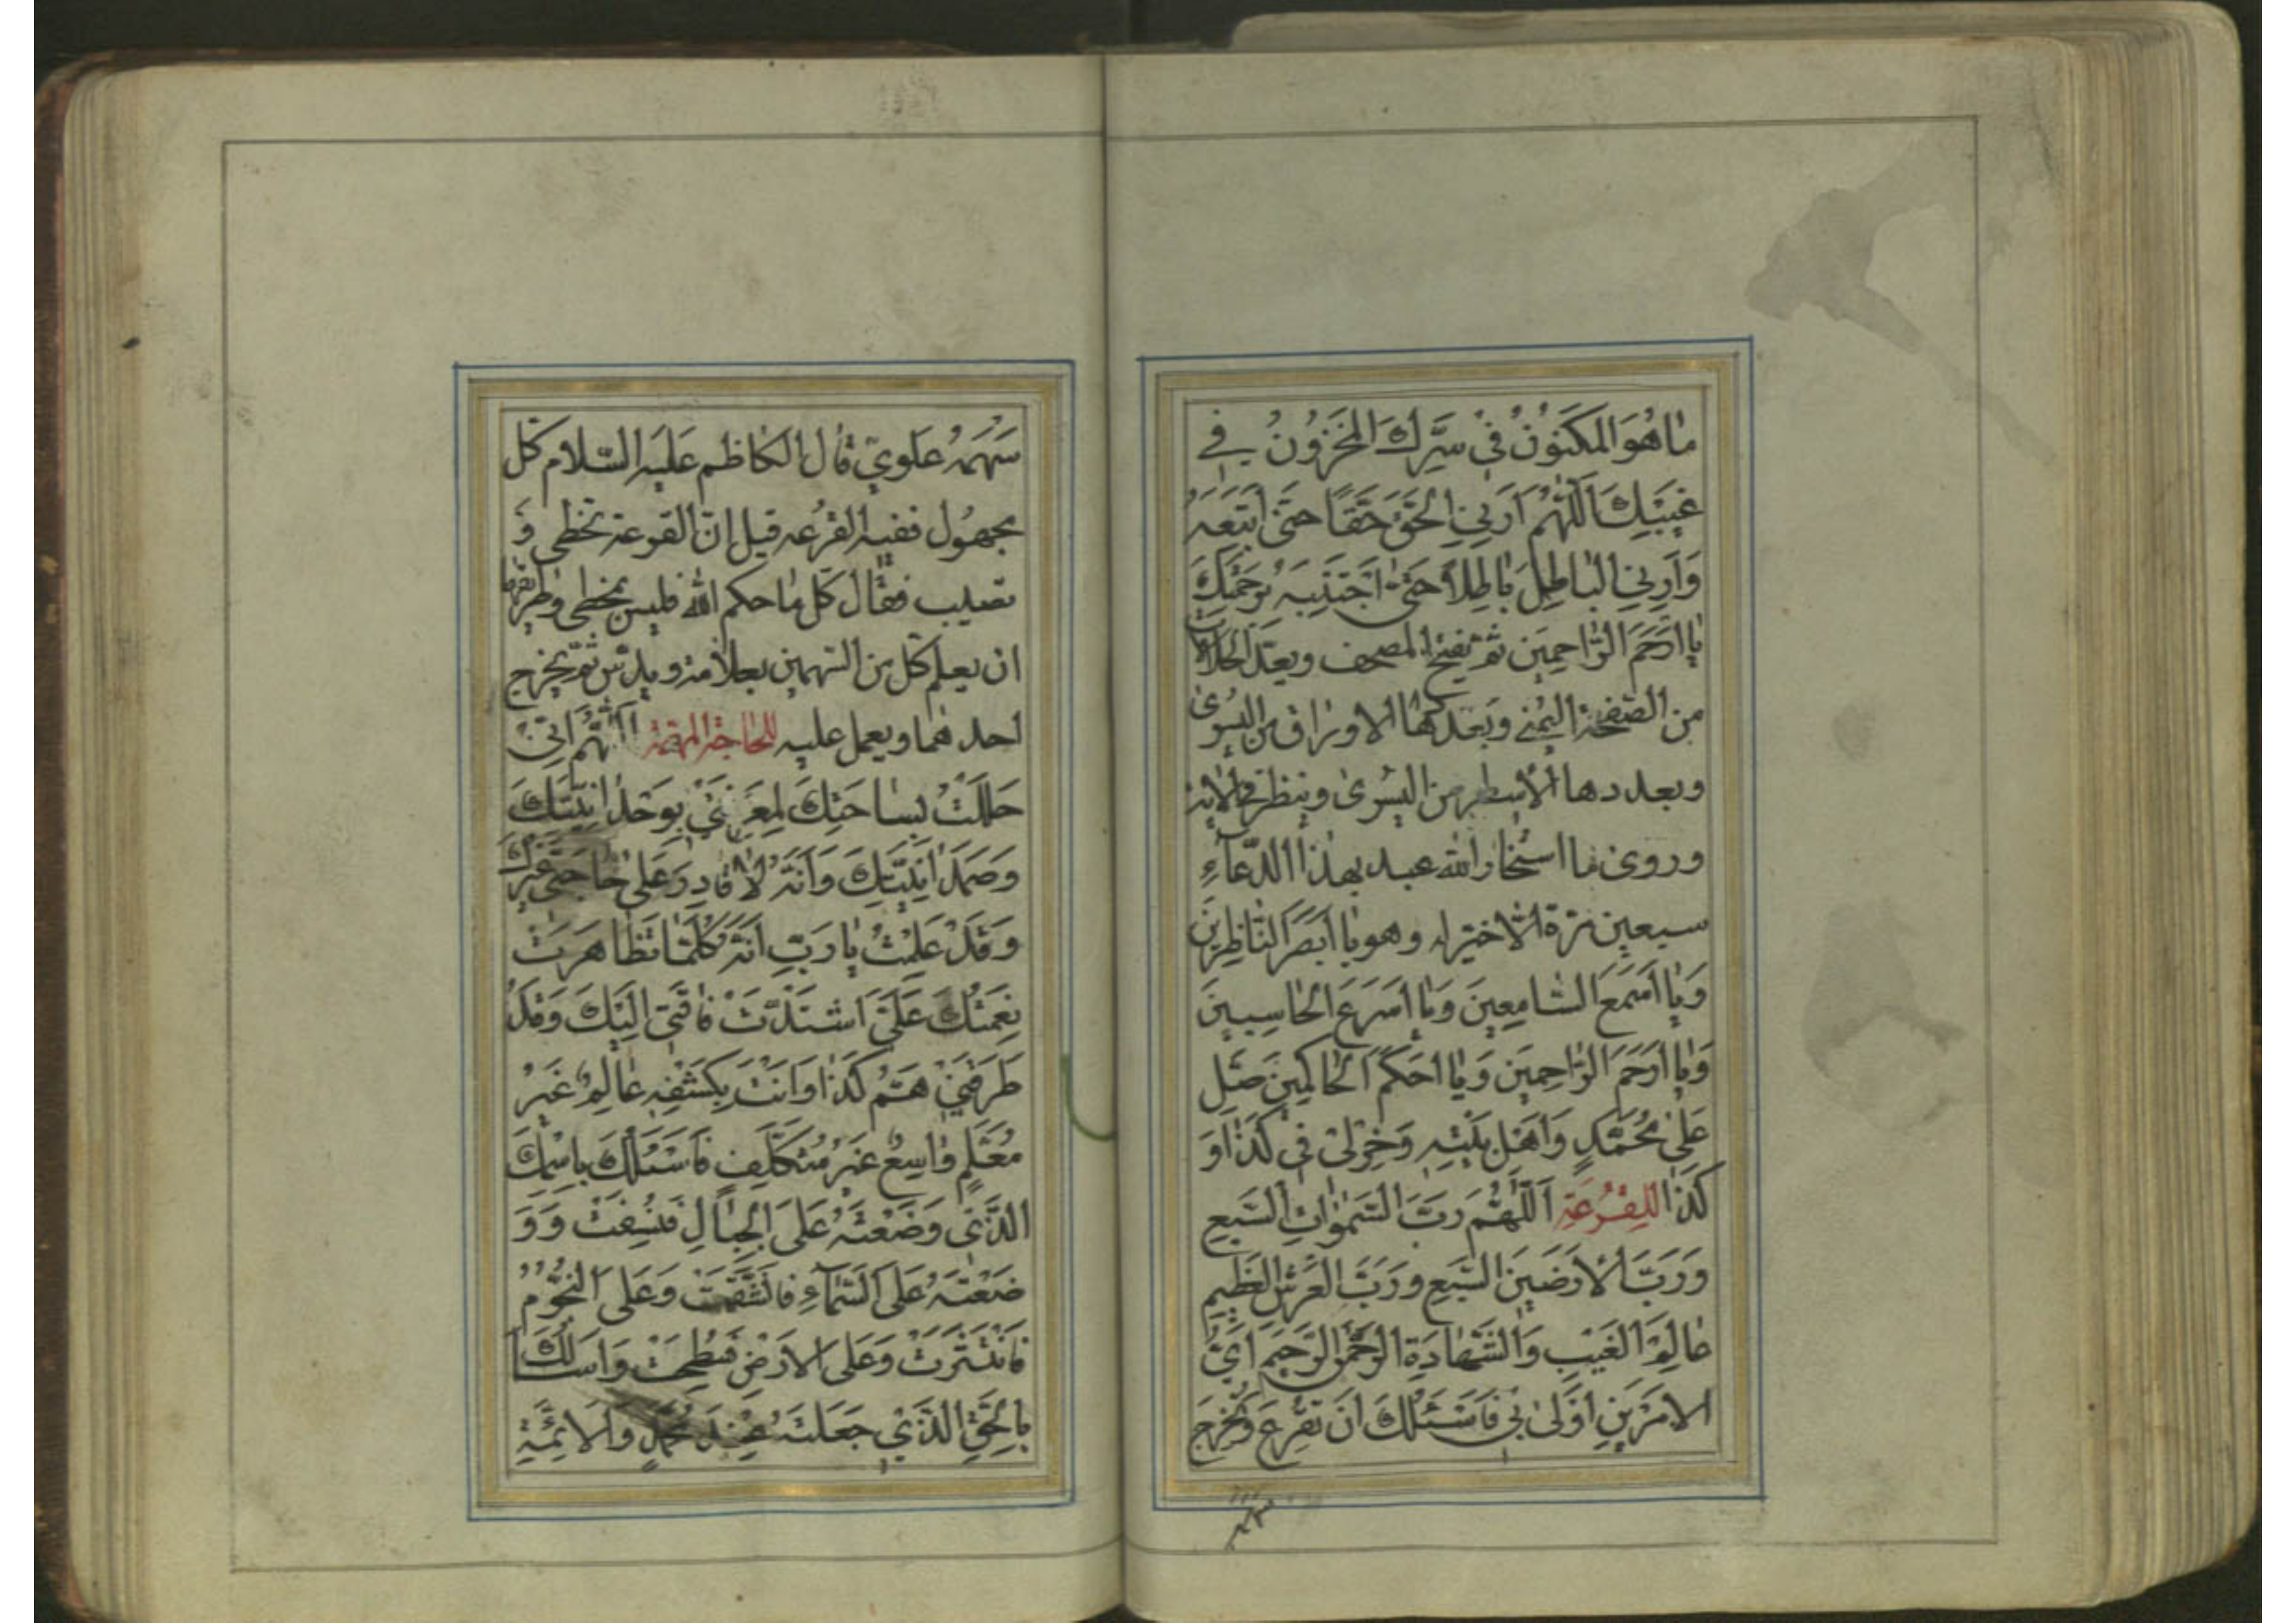 مٰا هُوَ الْمَكْنُونُ فِي سِرِّكَ الْمَخْزُونُ فِي
غَيْبِكَ اَللّٰهُمَّ اَرِنِي الْحَقَّ حَقًّا حَتّىٰ اَتَّبِعَهُ
وَاَرِنِي الْبٰاطِلَ بٰاطِلاً حَتّىٰ اَجْتَنِبَهُ بِرَحْمَتِكَ
يٰا اَرْحَمَ الرّٰاحِمِينَ ثم تفتح المصحف ويعدّ الجلالات
من الصفحة اليمنى وبعددها الاوراق من اليسرى
وبعددها الاسطر من اليسرى وينظر في الاية
وروى ما استخار الله عبد بهذا الدّعاء
سبعين مرة الا خير له وهو يٰا اَبْصَرَ النّٰاظِرِينَ
وَيٰا اَسْمَعَ السّٰامِعِينَ وَيٰا اَسْرَعَ الْحٰاسِبِينَ
وَيٰا اَرْحَمَ الرّٰاحِمِينَ وَيٰا اَحْكَمَ الْحٰاكِمِينَ صَلِّ
عَلىٰ مُحَمَّدٍ وَاَهْلِ بَيْتِهِ وَخِرْ لِي فِي كَذٰا وَ
كَذٰا لِلْقُرْعَةِ اَللّٰهُمَّ رَبَّ السَّمٰوٰاتِ السَّبْعِ
وَرَبَّ الْاَرَضِينَ السَّبْعِ وَرَبَّ الْعَرْشِ الْعَظِيمِ
عٰالِمَ الْغَيْبِ وَالشَّهٰادَةِ الرَّحْمٰنَ الرَّحِيمَ اَيُّ
الاَمْرَيْنِ اَوْلىٰ بِي فَاَسْئَلُكَ اَنْ تُقْرِعَ وَتُخْرِجَ
سهمه
سَهْمَهُ علوي قال الكاظم عليه السّلام كل
مجهول ففيه القرعه قيل انّ القرعة تخطى وَ
تصيب فقال كل ما حكم الله فليس بمخطى وطريقها
ان يعلم كل من السهمين بعلامة ويدسّ ثم يخرج
احدهما ويعمل عليه للحاجة المهمّة اَللّٰهُمَّ اِنِّي
حَلَلْتُ بِسٰاحَتِكَ لِمَعْرِفَتِي بِوَحْدٰانِيَّتِكَ
وَصَمَدٰانِيَّتِكَ وَاَنَّهُ لٰا قٰادِرَ عَلىٰ حٰاجَتِي غَيْرُكَ
وَقَدْ عَلِمْتُ يٰا رَبِّ اَنَّهُ كُلَّمٰا تَظٰاهَرَتْ
نِعْمَتُكَ عَلَيَّ اشْتَدَّتْ فٰاقَتِي اِلَيْكَ وَقَدْ
طَرَقَنِي هَمُّ كَذٰا وَاَنْتَ بِكَشْفِهِ عٰالِمٌ غَيْرُ
مُعَلَّمٍ وٰاسِعٌ غَيْرُ مُتَكَلِّفٍ فَاَسْئَلُكَ بِاسْمِكَ
الَّذِي وَضَعْتَهُ عَلَى الْجِبٰالِ فَنُسِفَتْ وَوَ
ضَعْتَهُ عَلَى السَّمٰاءِ فَانْشَقَّتْ وَعَلَى النُّجُومِ
فَانْتَثَرَتْ وَعَلَى الْاَرْضِ فَسُطِحَتْ وَاَسْاَلُكَ
بِالْحَقِّ الَّذِي جَعَلْتَهُ عِنْدَ مُحَمَّدٍ وَالْاَئِمَّةِ